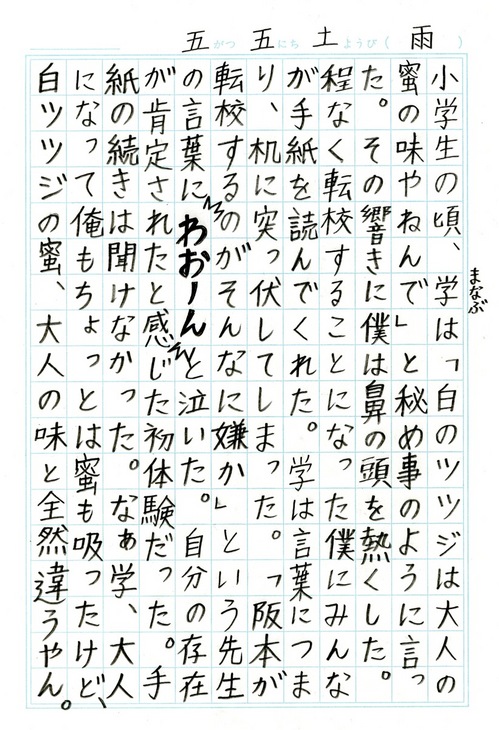 五がつ五にち土ようび(雨)
小学生の頃、学は「白のツツジは大人の
まなぶ
蜜の味やねんで」と秘め事のように言っ
た。その響きに僕は鼻の頭を熱くした。
程なく転校することになった僕にみんな
が手紙を読んでくれた。学は言葉につま
り、机に突っ伏してしまった。「阪本が
転校するのがそんなに嫌か」という先生
の言葉にわおーんと泣いた。自分の存在
が肯定されたと感じた初体験だった。手
紙の続きは聞けなかった。なぁ学、大人
になって俺もちょっとは蜜も吸ったけど、
白ツツジの蜜、大人の味と全然違うやん。